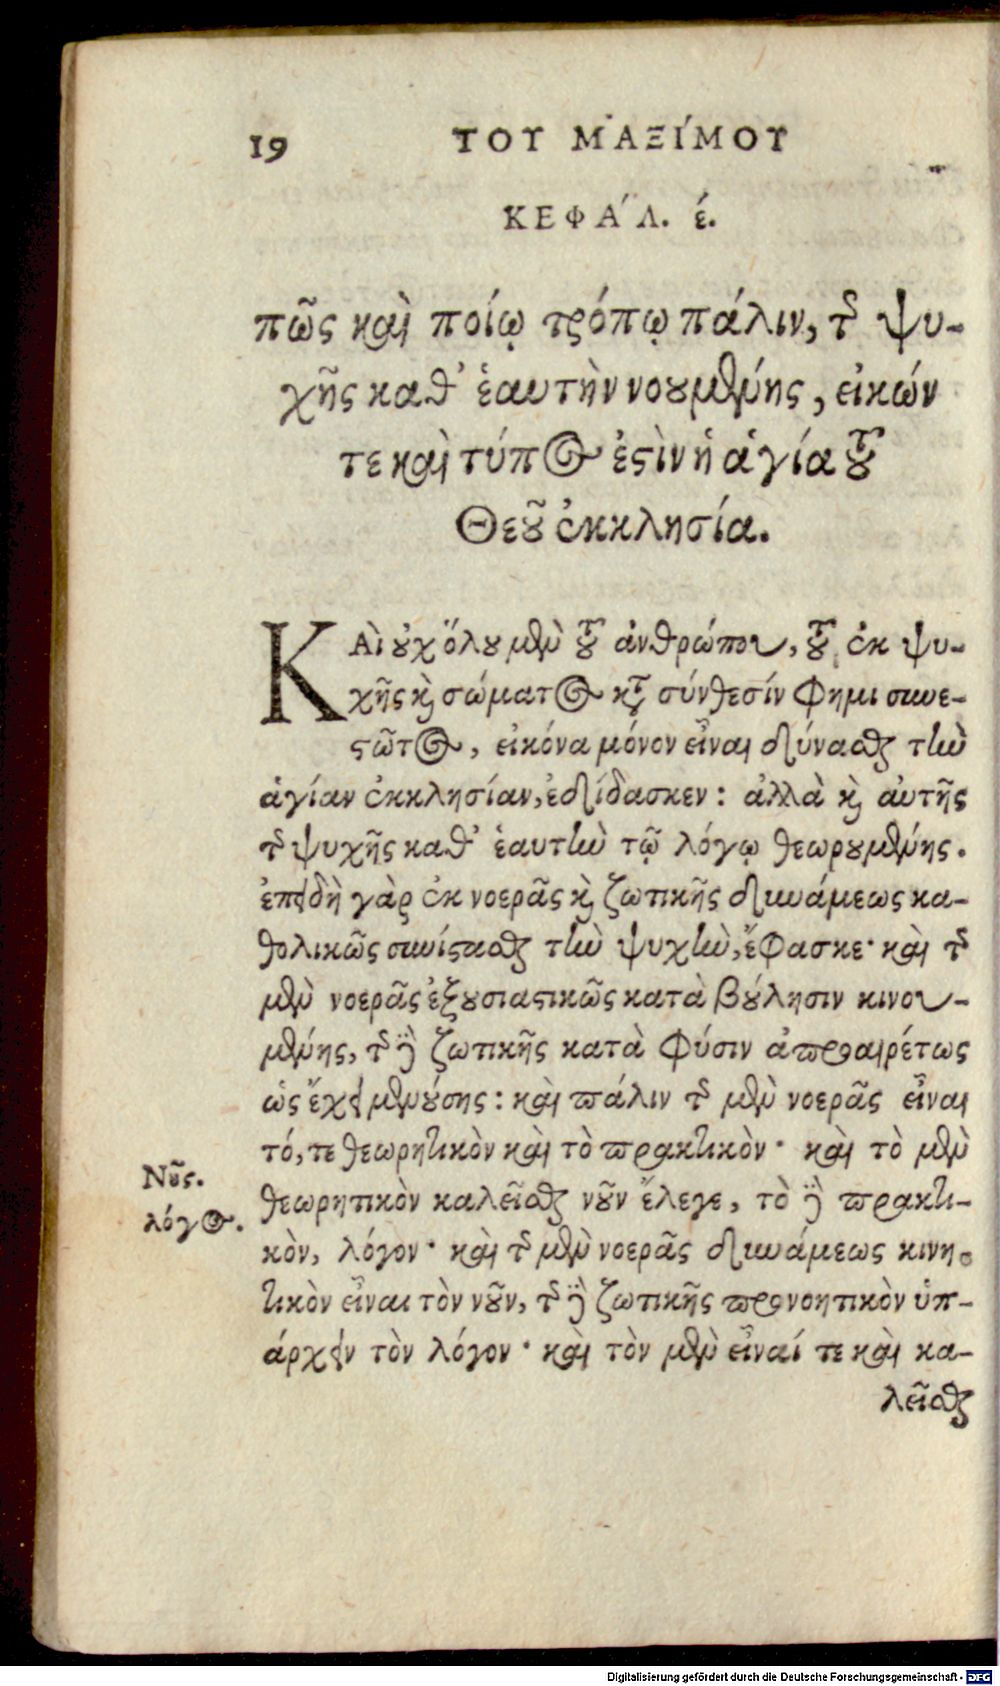 19 ΤΟΥ ΜΑΞΊΜΟΥ
ΚΕΦΆΛ. έ.
πῶς καὶ ποίῳ τρόπῳ πάλιν, τῆς ψυ-
χῆς καθ' ἑαυτὴν νουμένης, εἰκών
τε καὶ τύπος ἐστὶν ἡ ἁγία τοῦ
Θεοῦ ἐκκλησία.
ΚΑὶ οὐχ ὅλου μὲν τοῦ ἀνθρώπου, τοῦ ἐκ ψυ-
χῆς καὶ σώματος κατὰ σύνθεσίν φημι συνε-
στῶτος, εἰκόνα μόνον εἶναι δύνασθαι τὴν
ἁγίαν ἐκκλησίαν, ἐδίδασκεν: ἀλλὰ καὶ αὐτῆς
τῆς ψυχῆς καθ' ἑαυτὴν τῷ λόγῳ θεωρουμένης.
ἐπειδὴ γὰρ ἐκ νοερᾶς καὶ ζωτικῆς δυνάμεως κα-
θολικῶς συνίστασθαι τὴν ψυχὴν, ἔφασκε· καὶ τῆς
μὲν νοερᾶς ἐξουσιαστικῶς κατὰ βούλησιν κινου-
μένης, τῆς δὲ ζωτικῆς κατὰ φύσιν ἀπροαιρέτως
ὡς ἔχει μενούσης: καὶ πάλιν τῆς μὲν νοερᾶς εἶναι
τό, τε θεωρητικὸν καὶ τὸ πρακτικὸν· καὶ τὸ μὲν
Νοῦς.
θεωρητικὸν καλεῖσθαι νοῦν ἔλεγε, τὸ δὲ πρακτι-
λόγος.
κὸν, λόγον· καὶ τῆς μὲν νοερᾶς δυνάμεως κινη-
τικὸν εἶναι τὸν νοῦν, τῆς δὲ ζωτικῆς προνοητικὸν ὑπ-
άρχειν τὸν λόγον· καὶ τὸν μὲν εἶναί τε καὶ κα-
λεῖσθαι
Digitalisierung gefördert durch die Deutsche Forschungsgemeinschaft - DFG